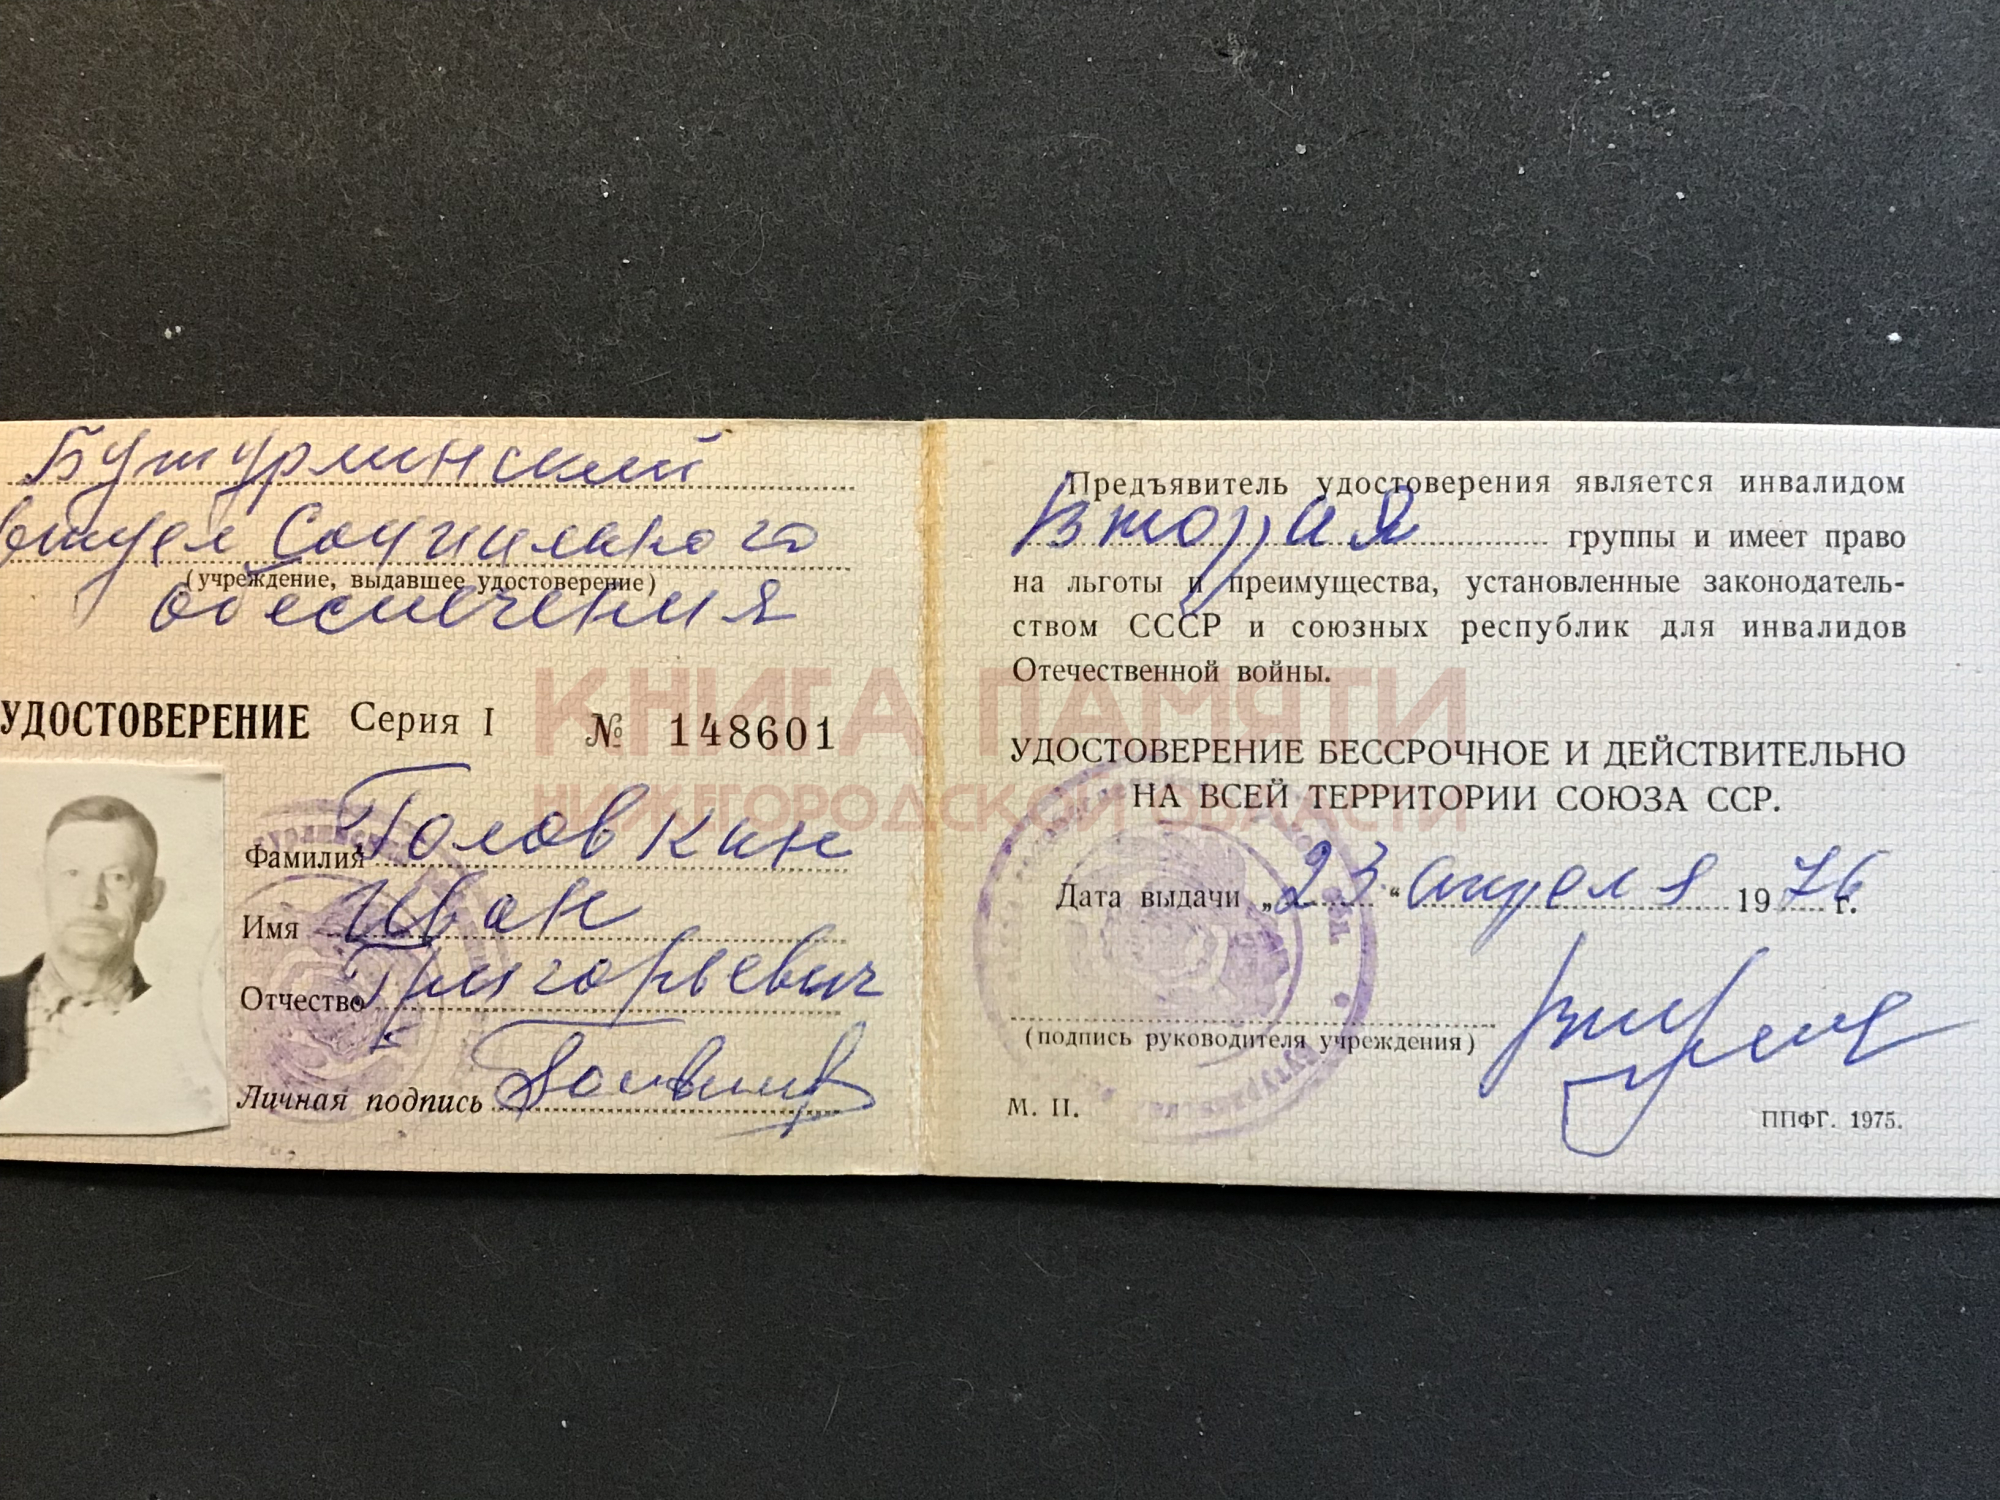 Бутурлинский
отдел Социального
(учреждение, выдавшее удостоверение)
обеспечения
УДОСТОВЕРЕНИЕ Серия I № 148601
Фамилия Головкин
Имя Иван
Отчество Григорьевич
Личная подпись
Предъявитель удостоверения является инвалидом
Вторая группы и имеет право
на льготы и преимущества, установленные законодатель-
ством СССР и союзных республик для инвалидов
Отечественной войны.
УДОСТОВЕРЕНИЕ БЕССРОЧНОЕ И ДЕЙСТВИТЕЛЬНО
НА ВСЕЙ ТЕРРИТОРИИ СОЮЗА ССР.
Дата выдачи „23“ апреля 1976 г.
(подпись руководителя учреждения)
М. П.
ППФГ. 1975.
КНИГА ПАМЯТИ
НИЖЕГОРОДСКОЙ ОБЛАСТИ